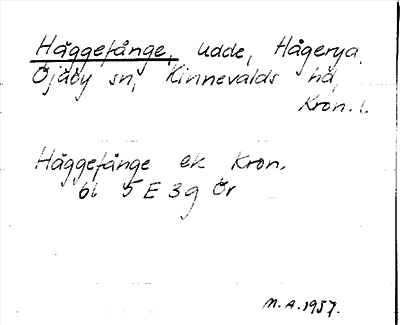 Häggefånge, udde, Hågerya,
Öjaby sn, Kinnevalds hd,
Kron. l.
Häggefånge ek Kron.
bl 5 E 3g Ör
M.A. 1957.